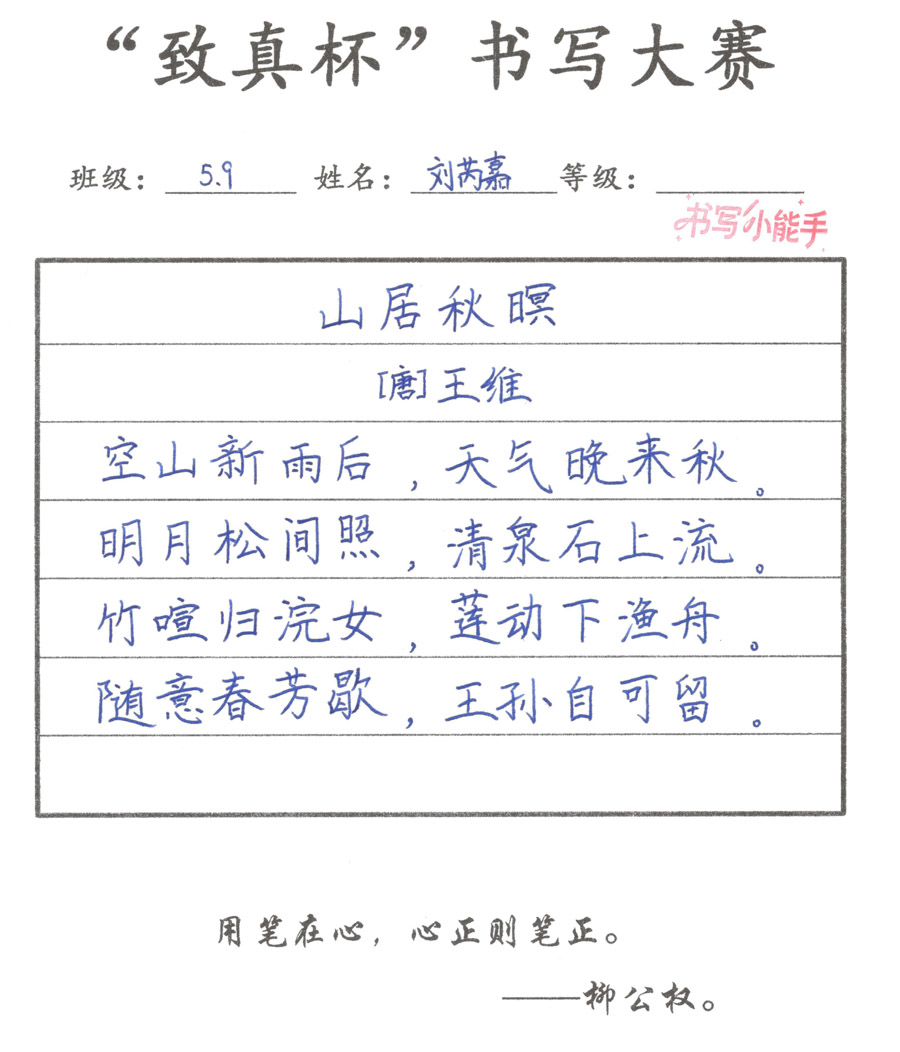 “致真杯”书写大赛
班级：5.9 姓名：刘芮嘉 等级：
书写小能手
山居秋暝
[唐]王维
空山新雨后，天气晚来秋。
明月松间照，清泉石上流。
竹喧归浣女，莲动下渔舟。
随意春芳歇，王孙自可留。
用笔在心，心正则笔正。
——柳公权。